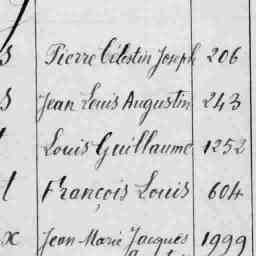 Pierre Célestin Joseph 206
Jean Louis Augustin 243
Louis Guillaume 1252
François Louis 604
x Jean Marie Jacques 1999